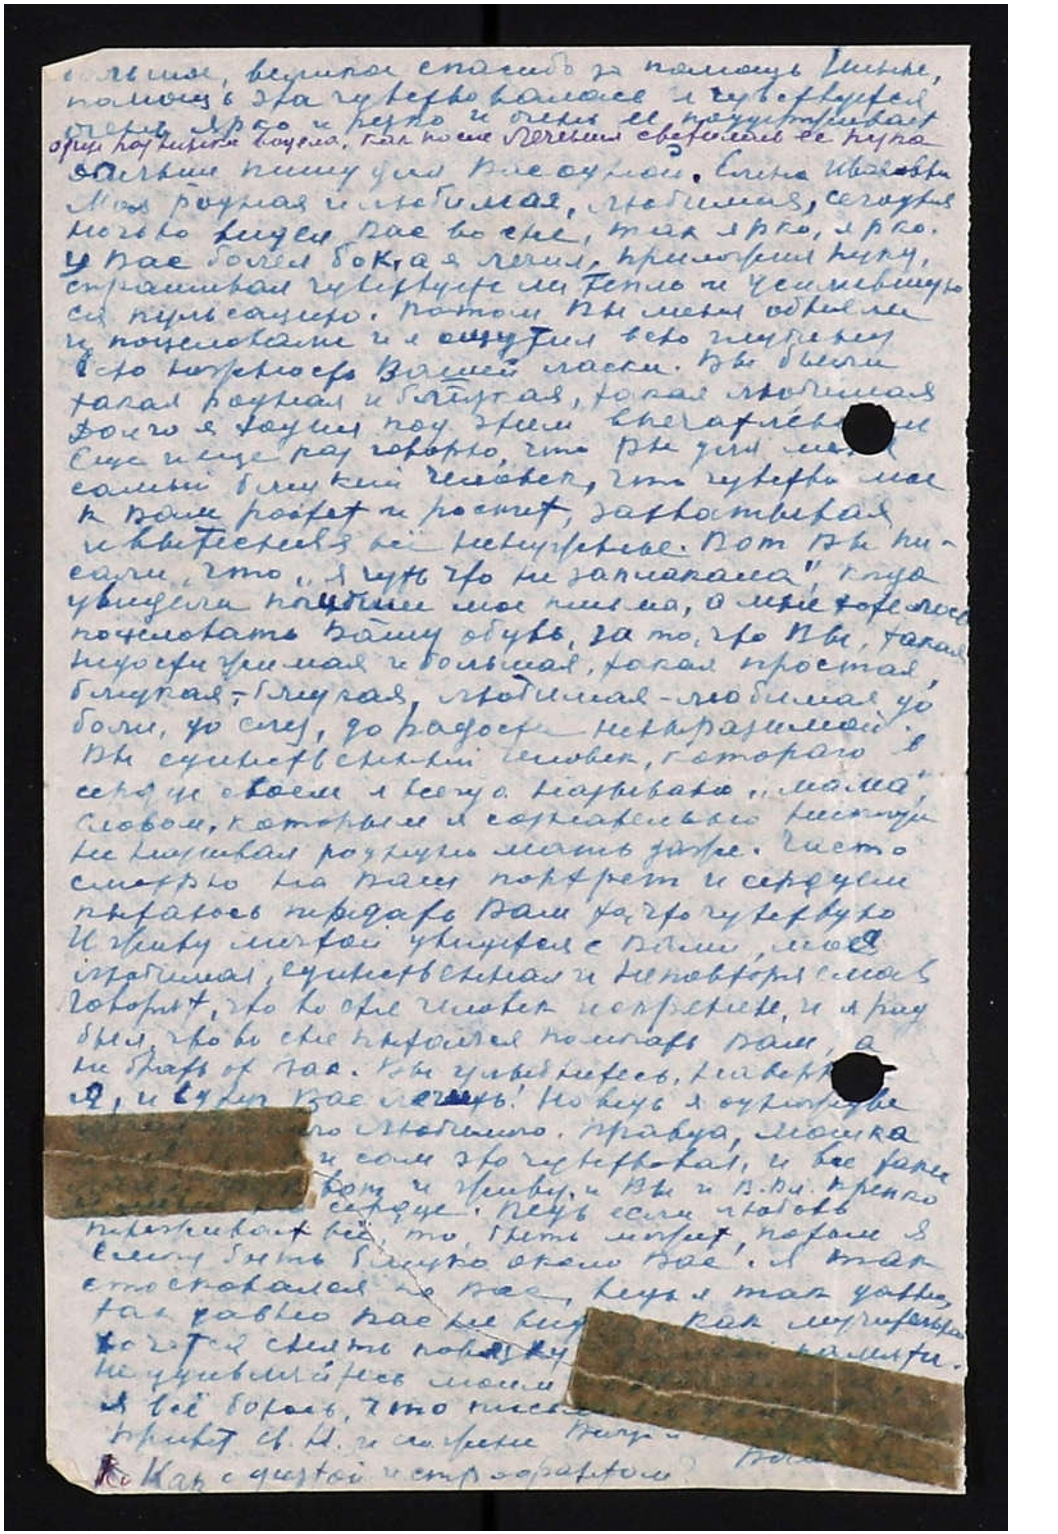 большое, великое спасибо за помощь Нинне,
помощь эта чувствовалась и чувствуется
очень ярко и резко и очень её поддерживает
один раз видела, как после лечения светилась её рука
Дальше пишу для Вас одной. Елена Ивановна
Моя родная и любимая, любимая, сегодня
ночью видел Вас во сне, так ярко, ярко.
У Вас болел бок, а я лечил, приложил руку,
спрашивал чувствуете ли тепло и усилившую
ся пульсацию. Потом Вы меня обняли
и поцеловали и я ощутил всю глубину
всю нежность Вашей ласки. Вы были
такая родная и близкая, такая любимая
Долго я ходил под этим впечатлением
Еще и еще раз говорю, что Вы для меня
самый близкий человек, что чувство мое
к Вам растет и растет, захватывая
и вытесняя всё ненужное. Вот Вы пи-
сали, что „я чуть что не заплакала", когда
увидели мои письма, а мне хотелось
поцеловать Вашу обувь, за то, что Вы, такая
недостижимая и большая, такая простая,
близкая-близкая, любимая-любимая до
боли, до слез, до радости невыразимой.
Вы единственный человек, которого в
сердце своем я всегда называю „мама",
словом, которым я сознательно никогда
не называл родную мать даже. Часто
смотрю на Ваш портрет и сердцем
пытаюсь передать Вам то, что чувствую
И живу мечтой увидеться с Вами, моя
любимая, единственная и неповторяемая
Говорят, что во сне человек искренен, и я рад
был, что во сне пытался помогать Вам, а
не брать от Вас. Вы улыбнетесь, наверн
Я, и вдруг Вас лечить! Но ведь я однажды
го любимого. Правда, мошка
и сам это чувствовал, и все таки
вот и живу, и Вы и В.Вл. крепко
сердце. Ведь если любовь
переживает всё, то, быть может, потом я
смогу быть близко около Вас. Я так
стосковался по Вас, ведь я так давно,
так давно Вас не вид Как мучительно
хочется снять повязку памяти.
Не удивляйтесь моим
я всё борюсь, что пись
Привет Св. Н. и
Как с диэтой и строфантом?